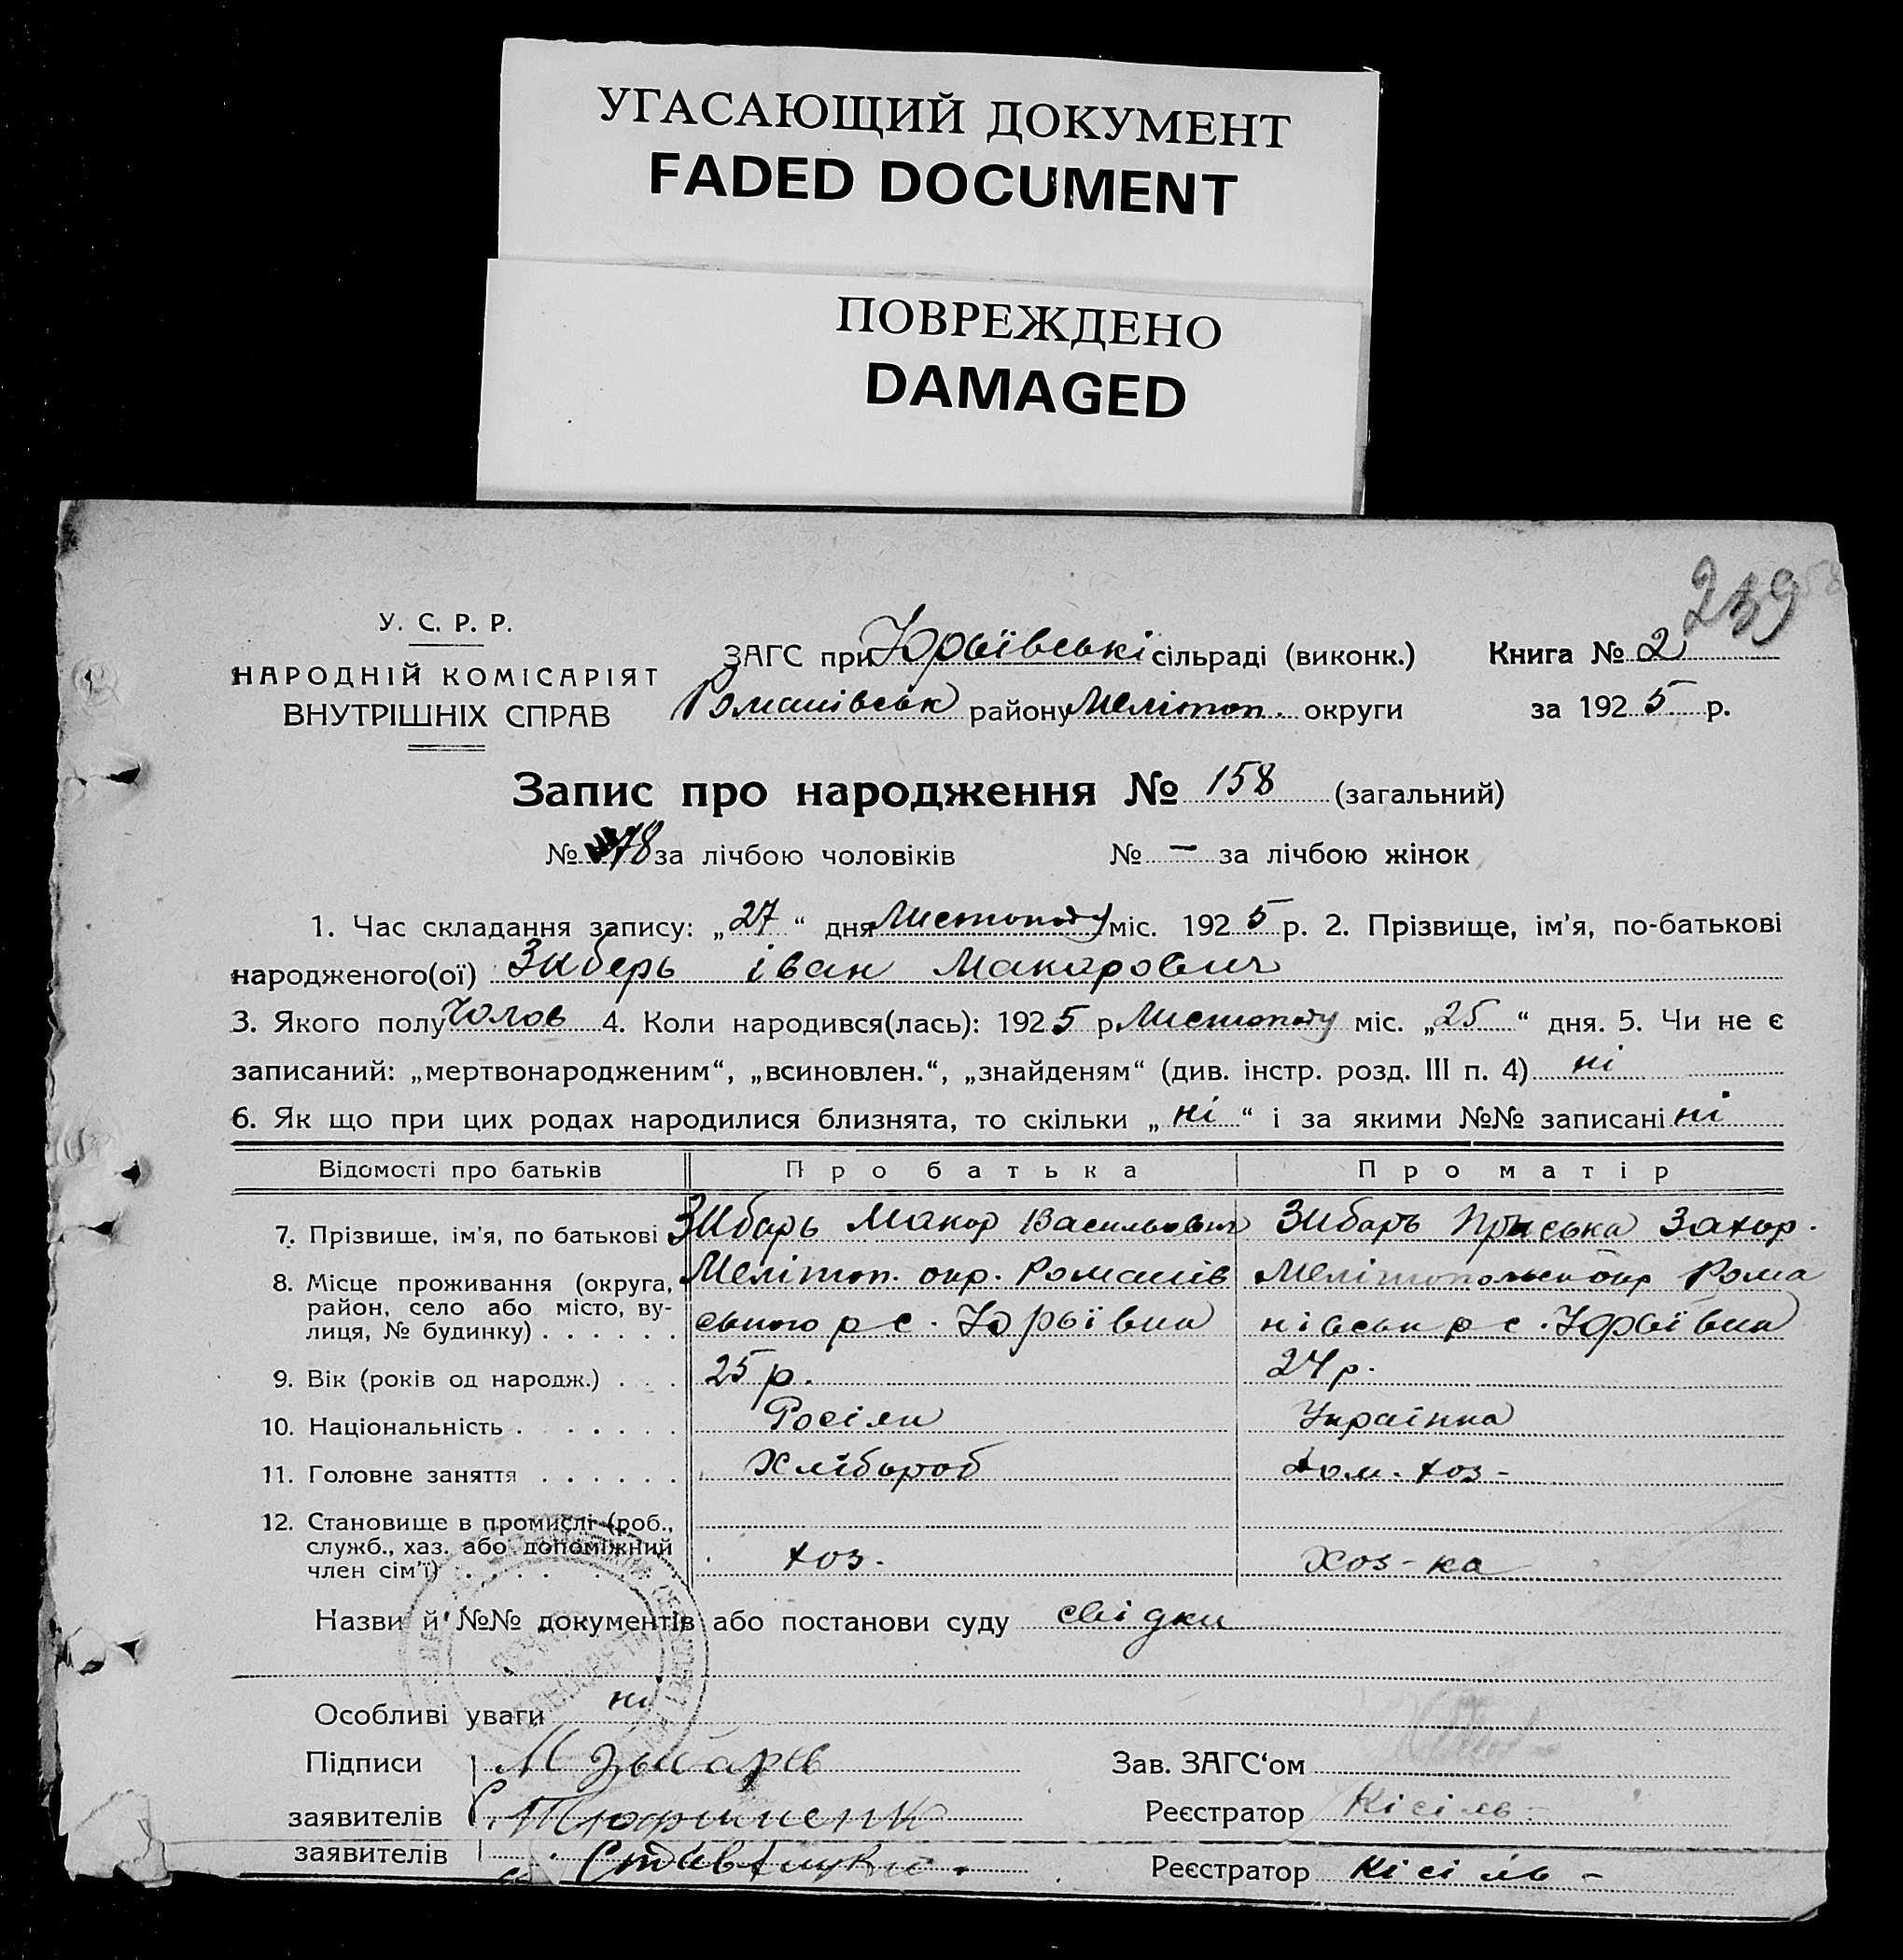 УГАСАЮЩИЙ ДОКУМЕНТ
FADED DOCUMENT
ПОВРЕЖДЕНО
DAMAGED
239
У. С. Р. Р.
НАРОДНІЙ КОМІСАРІЯТ
ВНУТРІШНІХ СПРАВ
ЗАГС при Юрьївські сільраді (виконк.) Книга № 2
Романівськ району Мелітоп. округи за 1925 р.
Запис про народження № 158 (загальний)
№ 78 за лічбою чоловіків № — за лічбою жінок
1. Час складання запису: „27“ дня Листопаду міс. 1925 р. 2. Прізвище, ім'я, по-батькові
народженого(ої) Зиберь іван Макарович
3. Якого полу Чолов 4. Коли народився(лась): 1925 р Листопаду міс. „25“ дня. 5. Чи не є
записаний: „мертвонародженим“, „всиновлен.“, „знайденям“ (див. інстр. розд. III п. 4) ні
6. Як що при цих родах народилися близнята, то скільки „ні“ і за якими №№ записані ні
Відомості про батьків Про батька Про матір
7. Прізвище, ім'я, по батькові Зибарь Макар Васильович Зибарь Приська Захар.
8. Місце проживання (округа, Мелітоп. окр. Романів Мелітопольск окр Рома
район, село або місто, ву-
лиця, № будинку) . . . . . . ського р с. Юрьївка нівськ р с. Юрьївка
9. Вік (років од народж.) . . . 25 р. 24 р.
10. Національність . . . . . . . Росіян Українка
11. Головне заняття . . . . . . Хлібороб дом. хоз-
12. Становище в промислі (роб.,
служб., хаз. або допоміжний хоз. Хоз-ка
член сім'ї) . . . . . . .
Назви й №№ документів або постанови суду свідки
Особливі уваги ні
Підписи М Зибарь Зав. ЗАГС‘ом
заявителів Реєстратор Кісіль-
заявителів Реєстратор Кісіль -